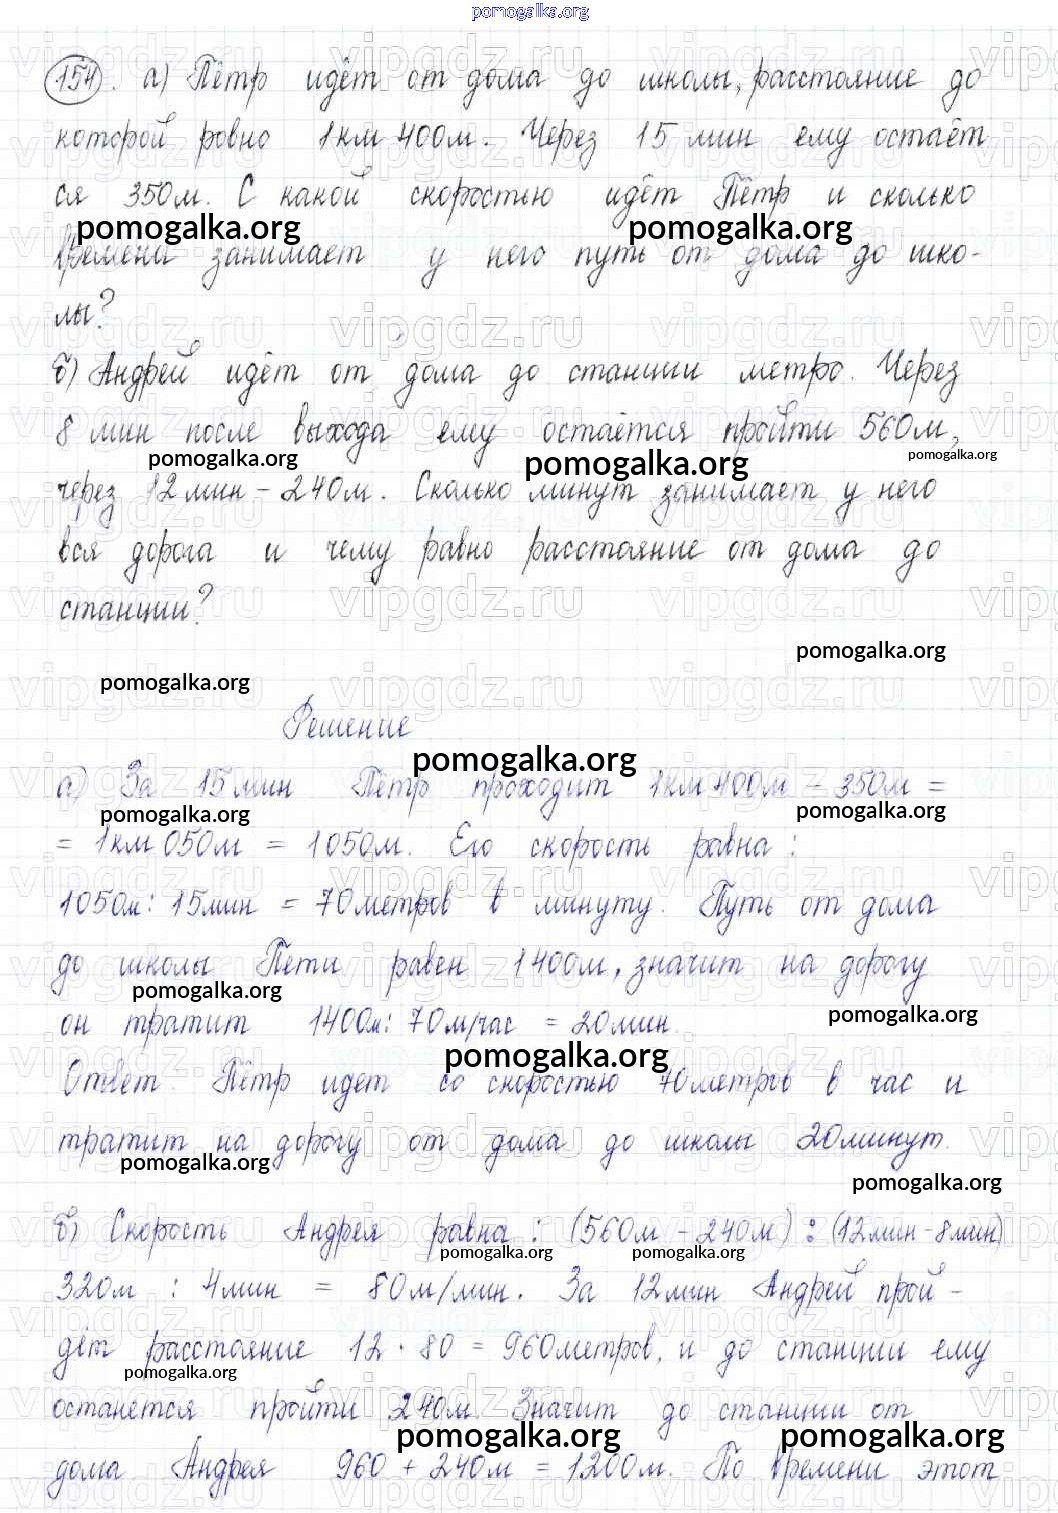 pomogalka.org
154. а) Пётр идёт от дома до школы, расстояние до
которой ровно 1км 400м. Через 15 мин ему остаёт
ся 350м. С какой скоростью идёт Пётр и сколько
pomogalka.org pomogalka.org
времени занимает у него путь от дома до шко-
лы?
б) Андрей идёт от дома до станции метро. Через
8 мин после выхода ему остаётся пройти 560м,
pomogalka.org pomogalka.org pomogalka.org
через 12 мин - 240м. Сколько минут занимает у него
вся дорога и чему равно расстояние от дома до
станции?
pomogalka.org
pomogalka.org
Решение
pomogalka.org
а) За 15 мин Пётр проходит 1км 400м - 350м =
pomogalka.org pomogalka.org
= 1км 050м = 1050м. Его скорость равна:
1050м : 15мин = 70метров в минуту. Путь от дома
до школы Пети равен 1400м, значит на дорогу
pomogalka.org pomogalka.org
он тратит 1400м: 70м/час = 20мин.
pomogalka.org
Ответ. Пётр идет со скоростью 70метров в час и
тратит на дорогу от дома до школы 20минут.
pomogalka.org pomogalka.org
б) Скорость Андрея равна : (560м - 240м) : (12мин - 8мин)
pomogalka.org pomogalka.org
320м : 4мин = 80м/мин. За 12мин Андрей прой -
дёт расстояние 12 · 80 = 960метров, и до станции ему
pomogalka.org
останется пройти 240м. Значит до станции от
pomogalka.org pomogalka.org
дома Андрея 960 + 240м = 1200м. По времени этот
vipgdz.ru